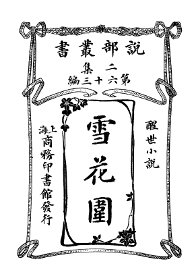 說部叢書
二集
第六十三編
醒世小說
雪花圍
上海商務印書館發行